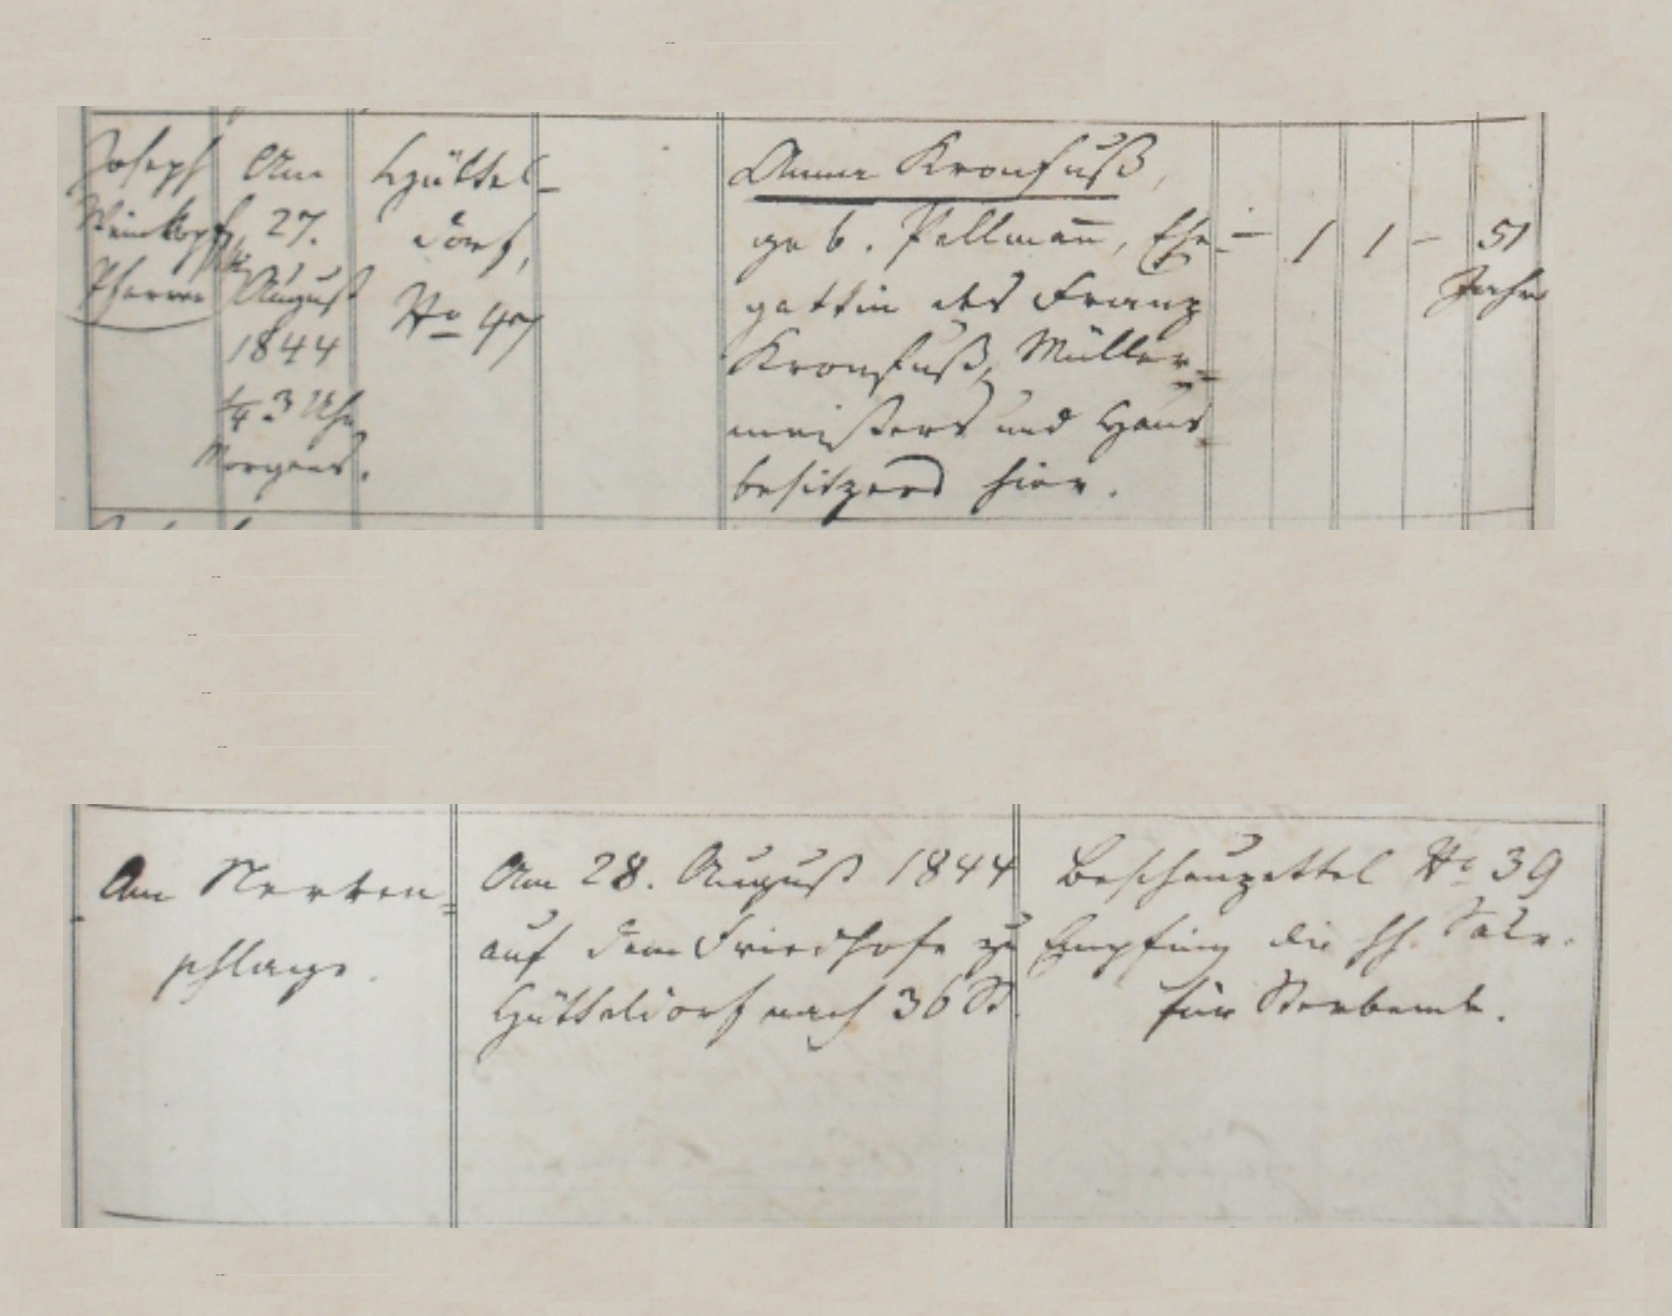 Joseph
Weinkopf,
Pfarrer
Am
27.
August
1844
1/4 3 Uhr
Morgens.
Hüttel-
dorf,
No 47
Anna Kronfuß,
geb. Pellmañ, Ehe-
gattin des Franz
Kronfuß, Müller-
meisters und Haus-
besitzers hier.
– 1 1 – 51
Jahre
Am Nerven-
schlage.
Am 28. August 1844
auf dem Friedhofe zu
Hütteldorf nach 36 St.
Beschauzettel No 39
Empfing die hh. Sakr.
für Sterbende.